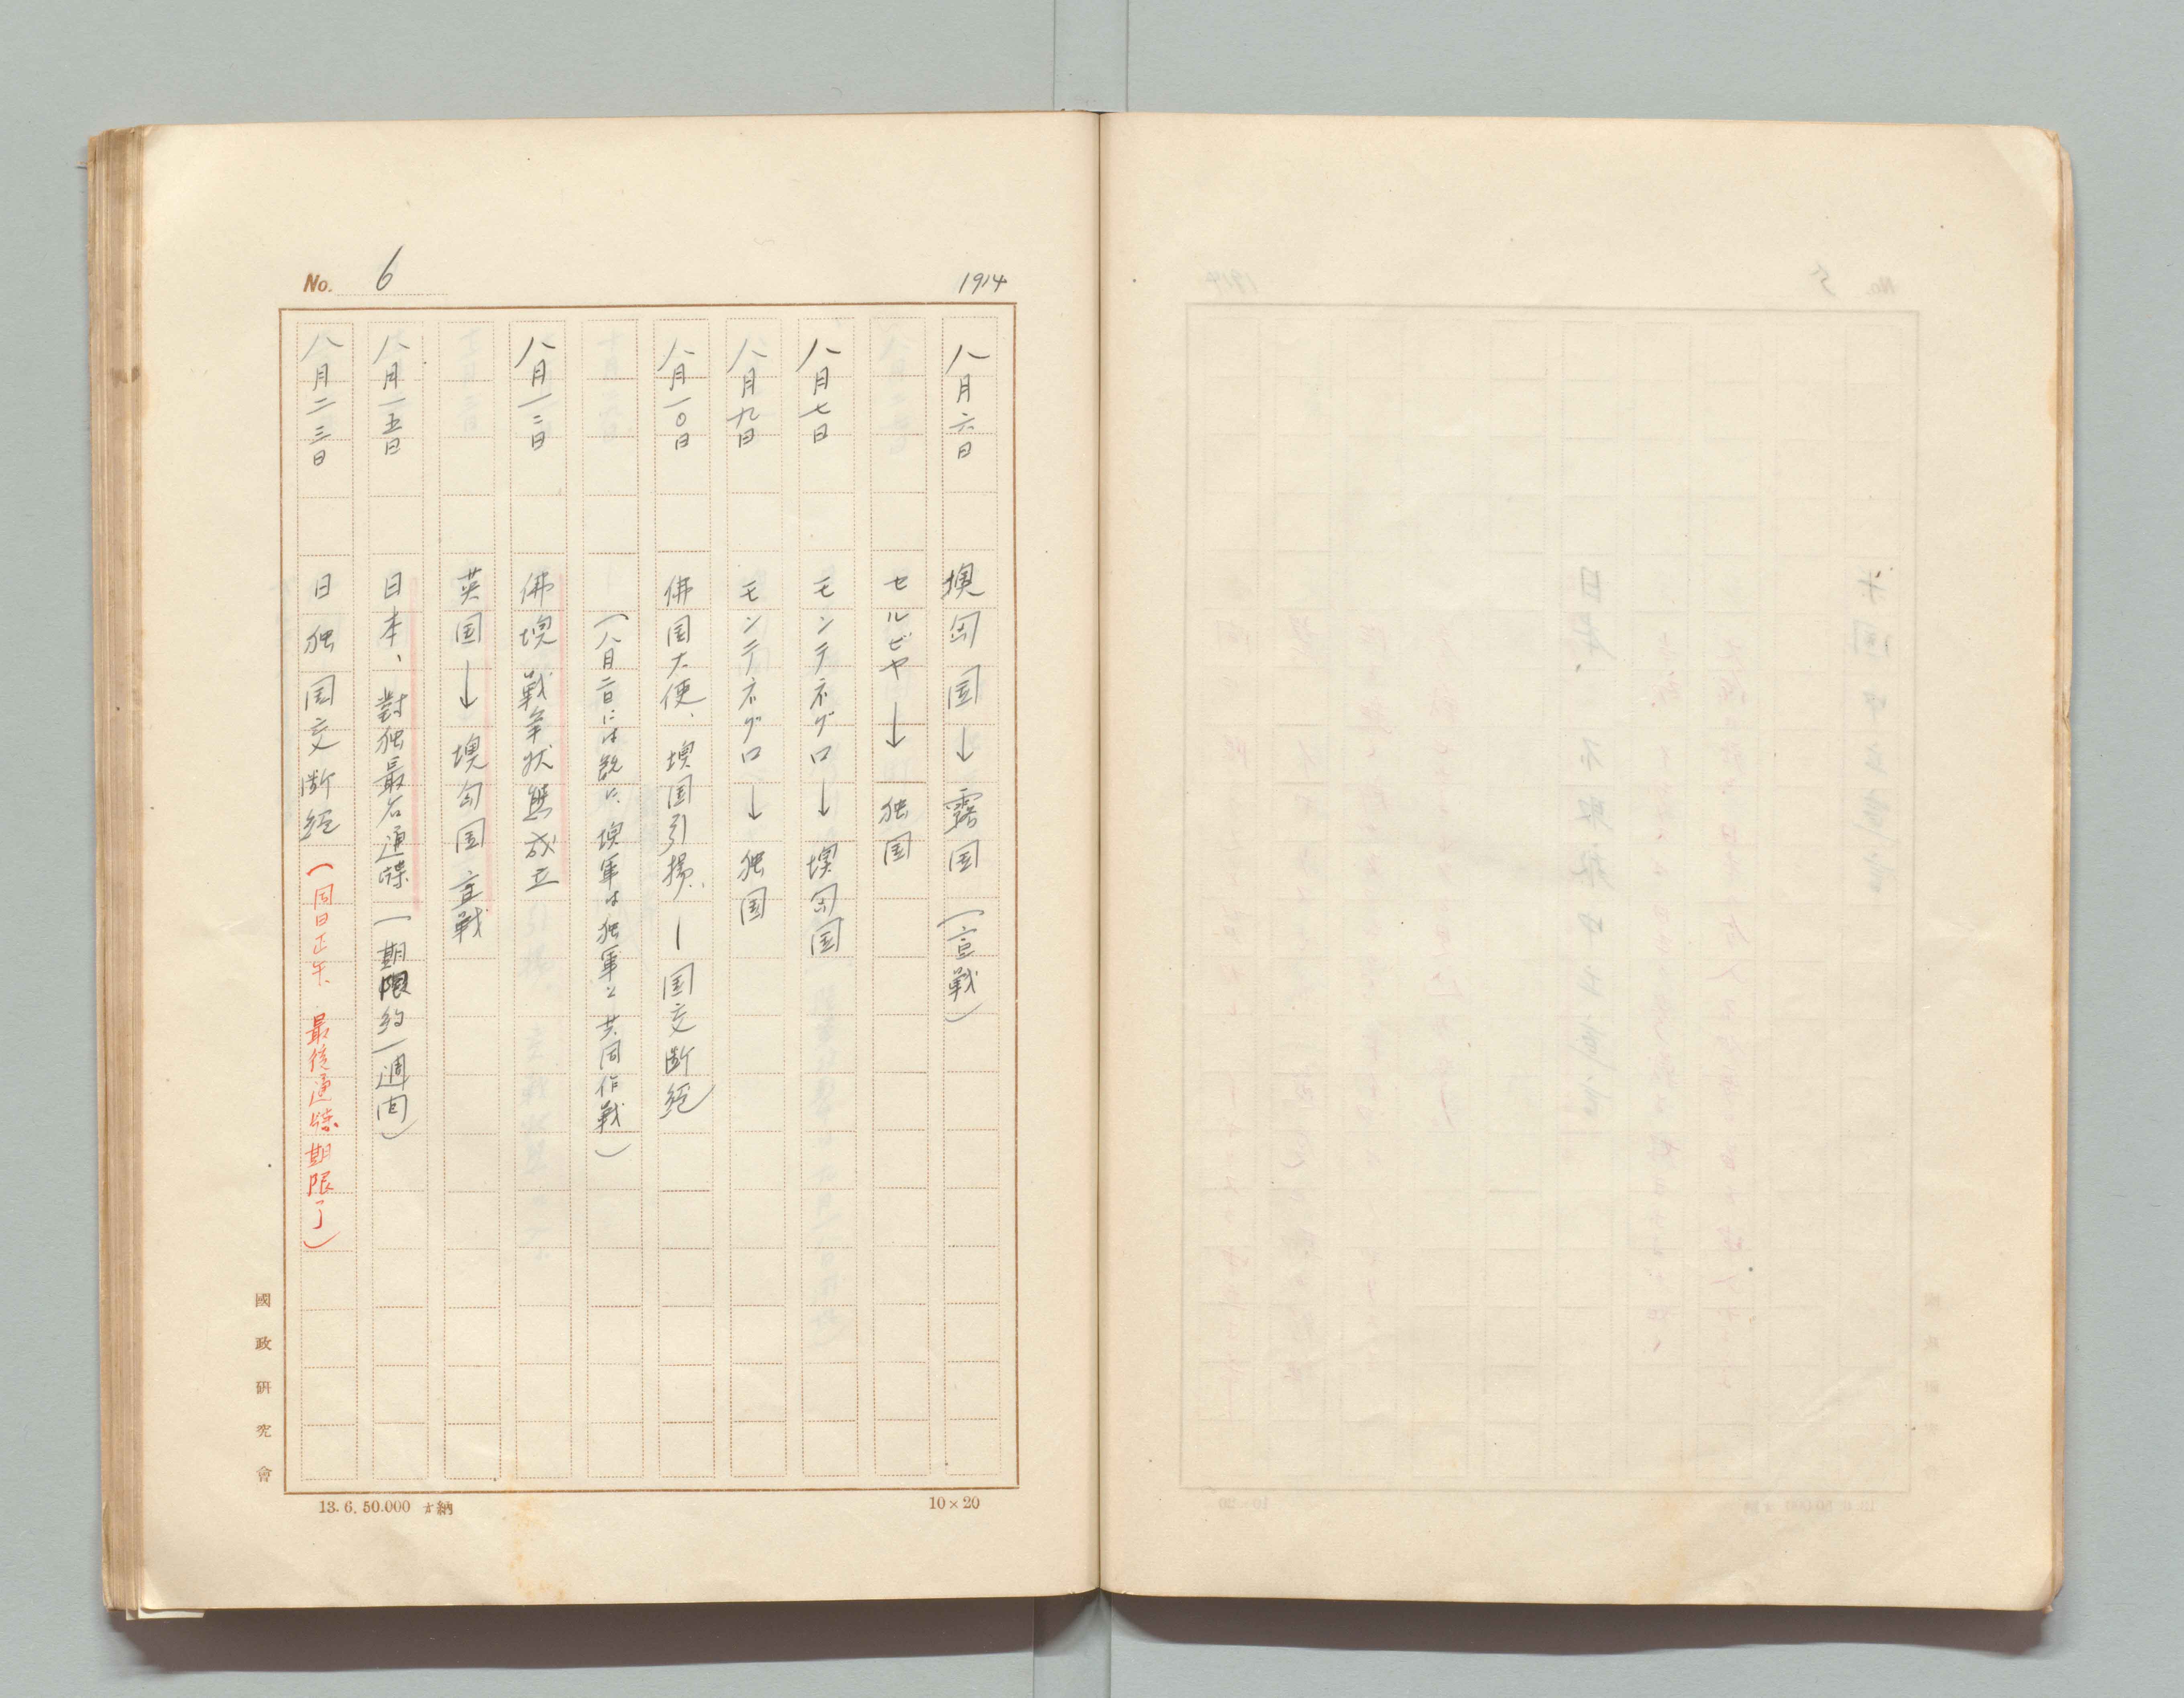 No. 6
1914
八月六日 墺匈国→露国(宣戦)
セルビヤ→独国
八月七日 モンテネグロ→墺匈国
八月九日 モンテネグロ→独国
八月一〇日 佛国大使、墺国引揚、―国交断絶
(八月二日には既に、墺軍は独軍と共同作戦)
八月一二日 佛墺戦争状態成立
英国→墺匈国宣戦
八月一五日 日本、對独最后通牒(期限約一週间)
八月二三日 日独国交断絶(同日正午、最後通牒期限了)
國政研究會
13.6.50.000 納
10×20